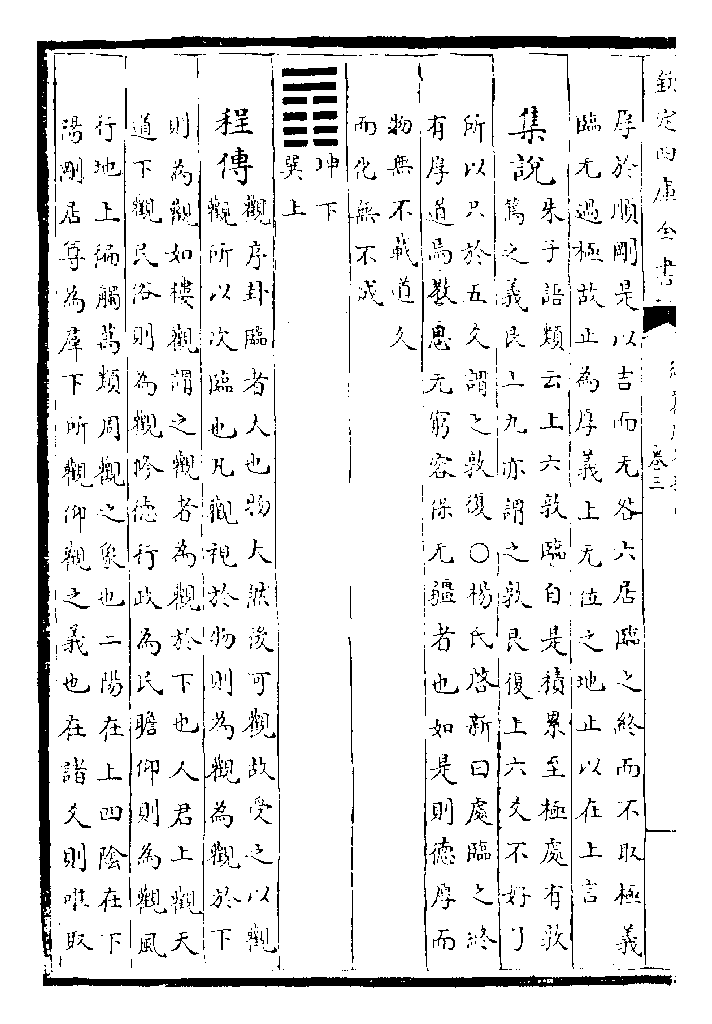 欽定四庫全書
卷三
厚於順剛是以吉而无咎六居臨之終而不取極義
臨无過極故止為厚義上无位之地止以在上言
集說
朱子語類云上六敦臨自是積累至極處有敦
篤之義艮上九亦謂之敦艮復上六爻不好了
所以只於五爻謂之敦復○楊氏啓新曰處臨之終
有厚道焉教思无窮容保无疆者也如是則德厚而
物無不載道久
而化無不成
坤下
巽上
程傳
觀序卦臨者人也物大然後可觀故受之以觀
觀所以次臨也凡觀視於物則為觀為觀於下
則為觀如樓觀謂之觀者為觀於下也人君上觀天
道下觀民俗則為觀修德行政為民瞻仰則為觀風
行地上徧觸萬類周觀之象也二陽在上四陰在下
陽剛居尊為羣下所觀仰觀之義也在諸爻則唯取